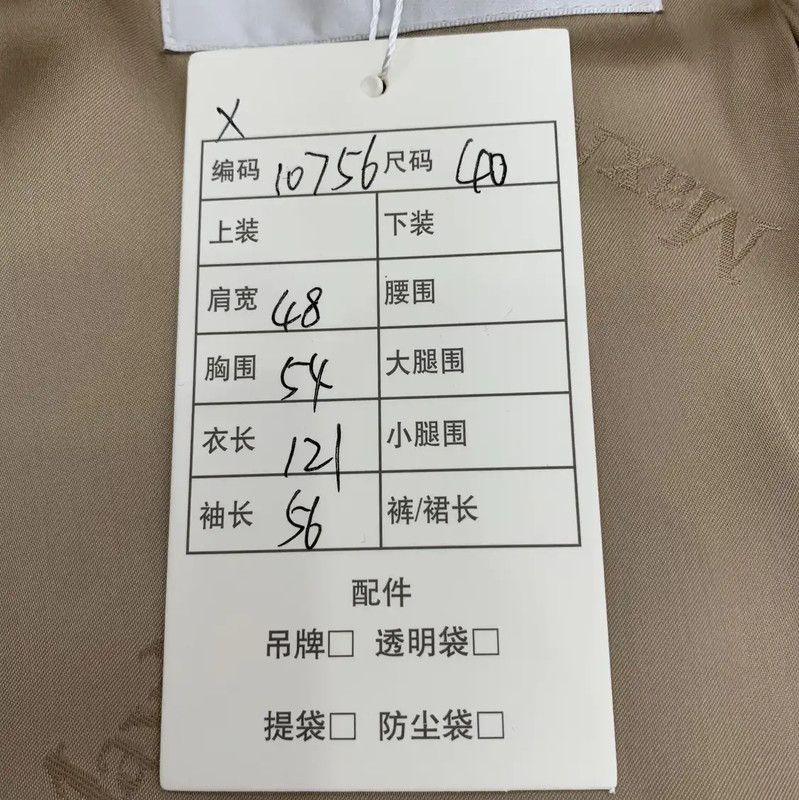 X
编码 10756 尺码 40
上装 下装
肩宽 48 腰围
胸围 54 大腿围
衣长 121 小腿围
袖长 56 裤/裙长
配件
吊牌□ 透明袋□
提袋□ 防尘袋□
MaxMara